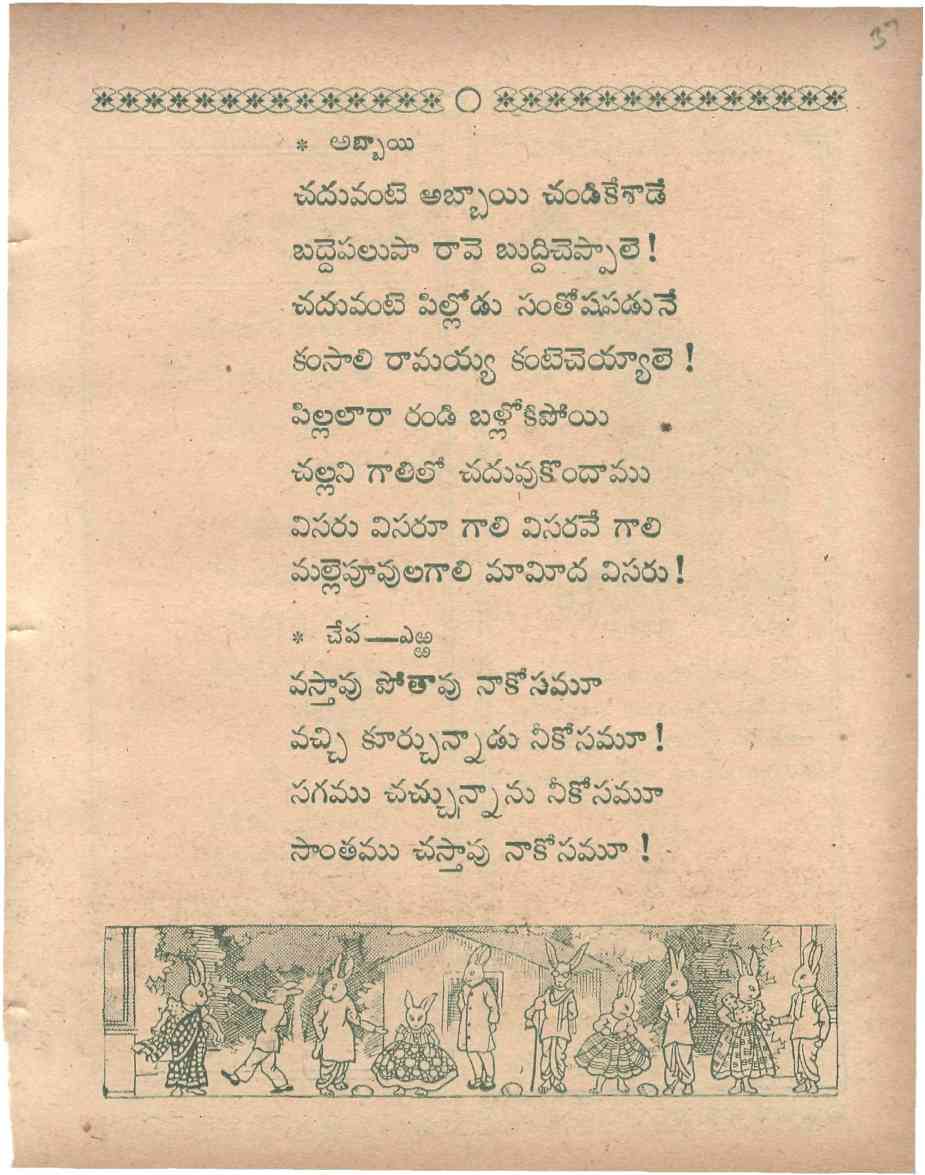 37
* అబ్బాయి
చదువంటె అబ్బాయి చండికేశాడే
బద్దెపలుపా రావె బుద్దిచెప్పాలె!
చదువంటె పిల్లోడు సంతోషపడునే
కంసాలి రామయ్య కంటెచెయ్యాలె!
పిల్లలారా రండి బళ్లోకిపోయి
చల్లని గాలిలో చదువుకొందాము
విసరు విసరూ గాలి విసరవే గాలి
మల్లెపూవులగాలి మామీద విసరు!
* చేప—ఎఱ్ఱ
వస్తావు పోతావు నాకోసమూ
వచ్చి కూర్చున్నాడు నీకోసమూ!
సగము చచ్చున్నాను నీకోసమూ
సాంతము చస్తావు నాకోసమూ!